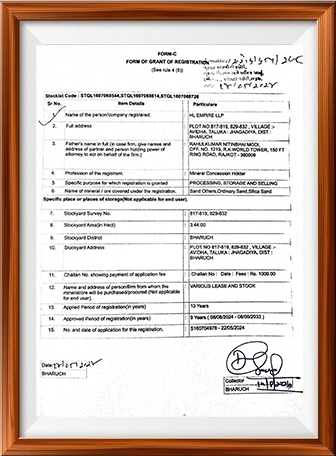 FORM-C
FORM OF GRANT OF REGISTRATION
(See rule 4 (8))
Stockist Code : STQL1607060544,STQL1607060614,STQL1607060726
Sr No. Item Details Particulars
1. Name of the person/company registered: HL EMPIRE LLP
2. Full address : PLOT NO 817-819, 829-832 , VILLAGE :- AVIDHA, TALUKA : JHAGADIYA, DIST : BHARUCH
3. Father's name in full (in case firm, give names and address of partner and person holding power of attorney to act on behalf of the firm.) : RAHULKUMAR NITINBHAI MODI, OFF. NO. 1219, R.K.WORLD TOWER, 150 FT RING ROAD, RAJKOT - 360006
4. Profession of the registrant : Mineral Concession Holder
5. Specific purpose for which registration is granted : PROCESSING, STORAGE AND SELLING
6. Name of mineral / ore covered under the registration. : Sand Others,Ordinary Sand,Silica Sand
Specific place or places of storage(Not applicable for end user).
7. Stockyard Survey No. : 817-819, 829-832
8. Stockyard Area(in Hect) : 3.44.00
9. Stockyard District : BHARUCH
10. Stockyard Address : PLOT NO 817-819, 829-832 , VILLAGE :- AVIDHA, TALUKA : JHAGADIYA, DIST : BHARUCH
11. Challan No. showing payment of application fee : Challan.No : Date : Fees : Rs. 1000.00
12. Name and address of person/firm from whom the mineral/ore will be purchased/procured (Not applicable for end user). : VARIOUS LEASE AND STOCK
13. Applied Period of registration(in years) : 10 Years
14. Approved Period of registration(in years) :
15. No. and date of application for this registration. :
Date:
BHARUCH
Collector
BHARUCH